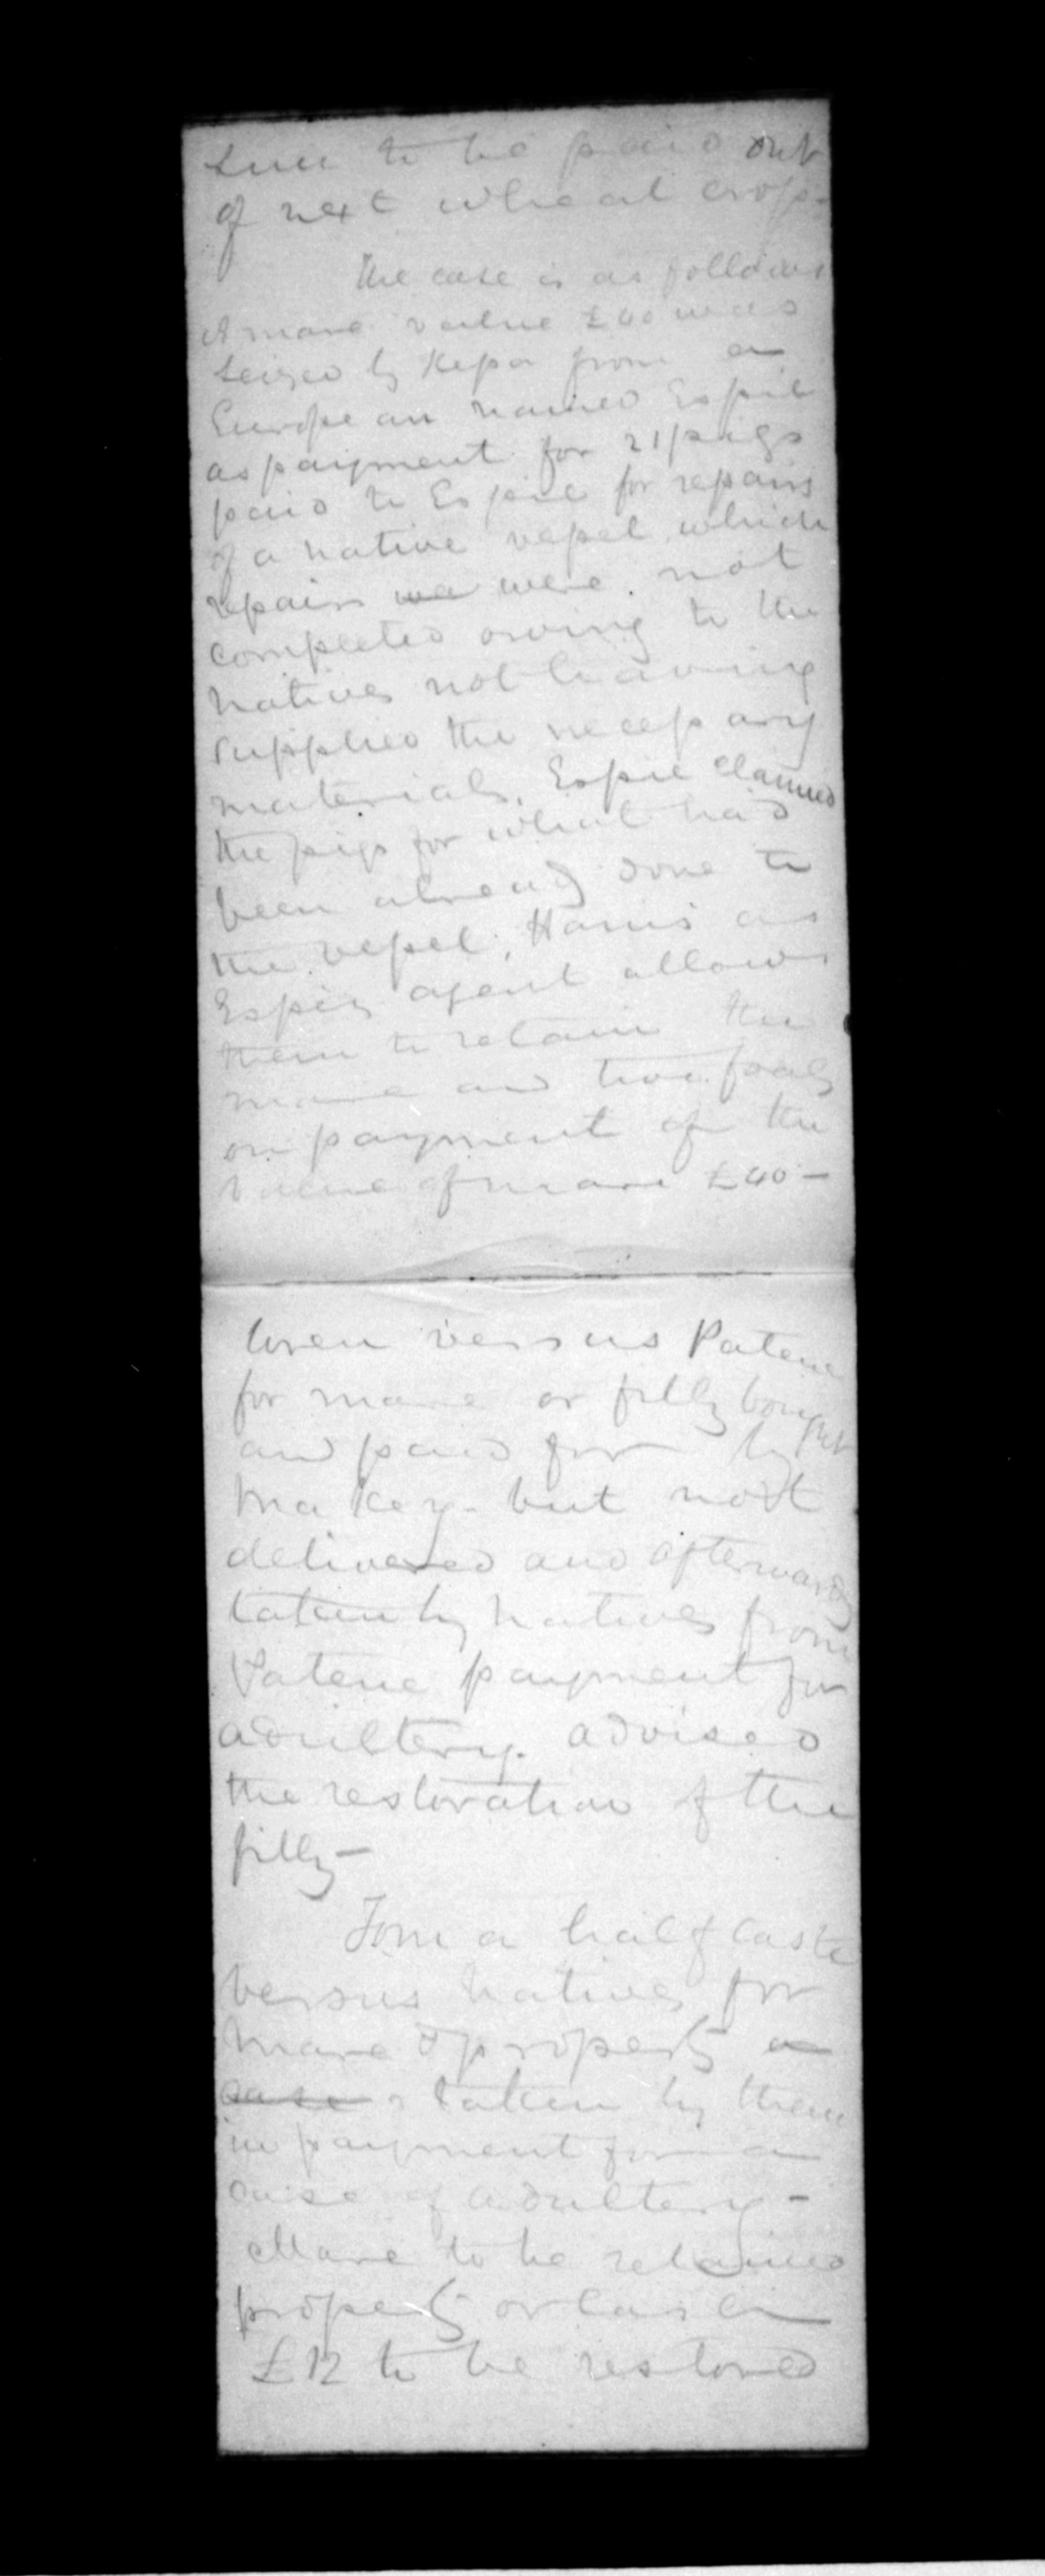 to be paid out
of next wheat crop.
The case is as follows
A mare value £40 was
seized by Kepa from a
European named Espie
as payment for 21 pigs
paid to Espie for repairs
of a native vessel which
repairs we were not
completed owing to the
natives not having
supplied the necessary
materials. Espie claimed
the pigs for what had
been already done to
the vessel. Harris as
Espies agent allows
them to retain the
mare and two foals
on payment of the
value of mare £40 -
versus Patene
for mare or filly bought
and paid for by
Makey - but not
delivered and afterwards
taken by natives from
Patene payment for
adultery. advised
the restoration of the
filly -
Tom a half caste
versus natives for
mare & property a
case & taken by them
in payment for a
case of adultery -
Mare to be retained
property or cash
£12 to be restored